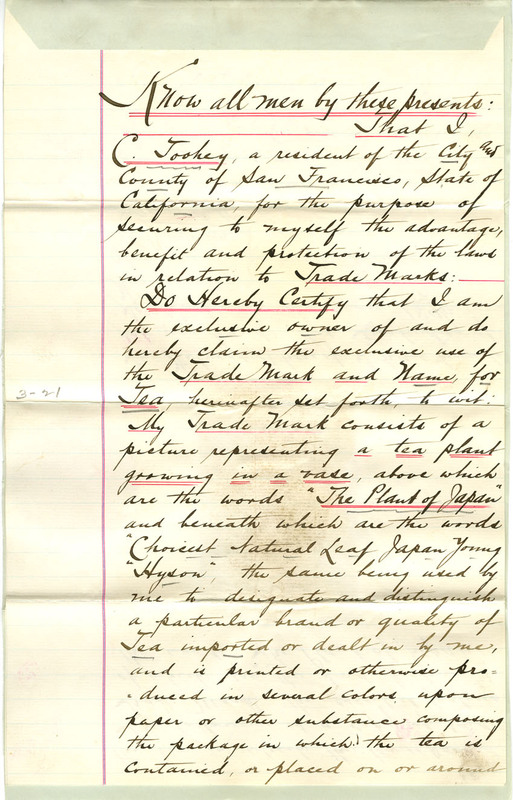 Know all men by these presents:
That I,
C. Toohey, a resident of the City and
County of San Francisco, State of
California, for the purpose of
securing to myself the advantage,
benefit and protection of the laws
in relation to Trade Marks:
Do Hereby Certify that I am
the exclusive owner of and do
hereby claim the exclusive use of
the Trade Mark and Name, for
3-21
Tea, herinafter set forth, to wit:
My Trade Mark consists of a
picture representing a tea plant
growing in a vase, above which
are the words "The Plant of Japan"
and beneath which are the words
"Choicest Natural Leaf Japan Young
"Hyson", the same being used by
me to designate and distinguish
a particular brand or quality of
Tea imported or dealt in by me,
and is printed or otherwise pro=
=duced in several colors, upon
paper or other substance composing
the package in which the tea is
contained, or placed on or around